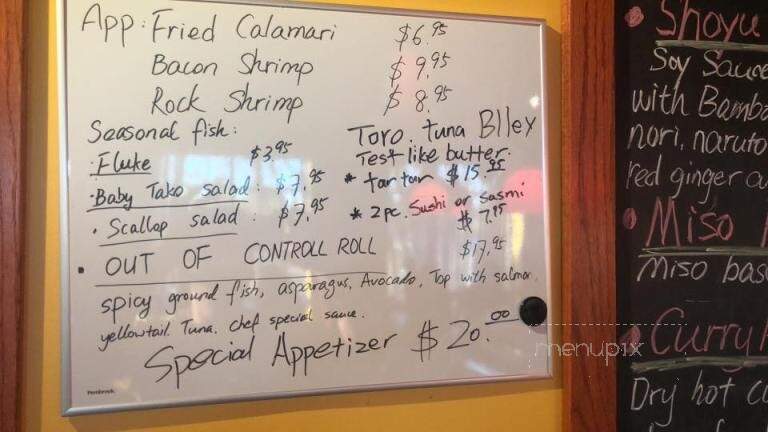 App: Fried Calamari $6.95
Bacon Shrimp $9.95
Rock Shrimp $8.95
Seasonal fish:
· Fluke $3.95
· Baby Tako salad: $7.95
· Scallop salad: $7.95
Toro. tuna Blley
Test like butter.
* tar tar $15.95
* 2pc. Sushi or sasmi
$7.95
· OUT OF CONTROLL ROLL $17.95
spicy ground fish, asparagus, Avocado, Top with salmon,
yellowtail, Tuna, chef special sauce.
Special Appetizer $20.00
menupix
• Shoyu
Soy Sauce
with Bamb
nori, naruto
red ginger
• Miso
Miso bas
• Curry
Dry hot